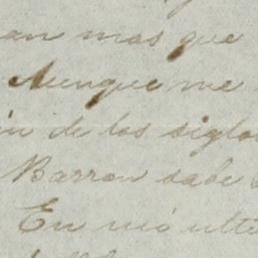 an mas que
Aunque me
in de los siglo
Barron sabe
En mi ulti